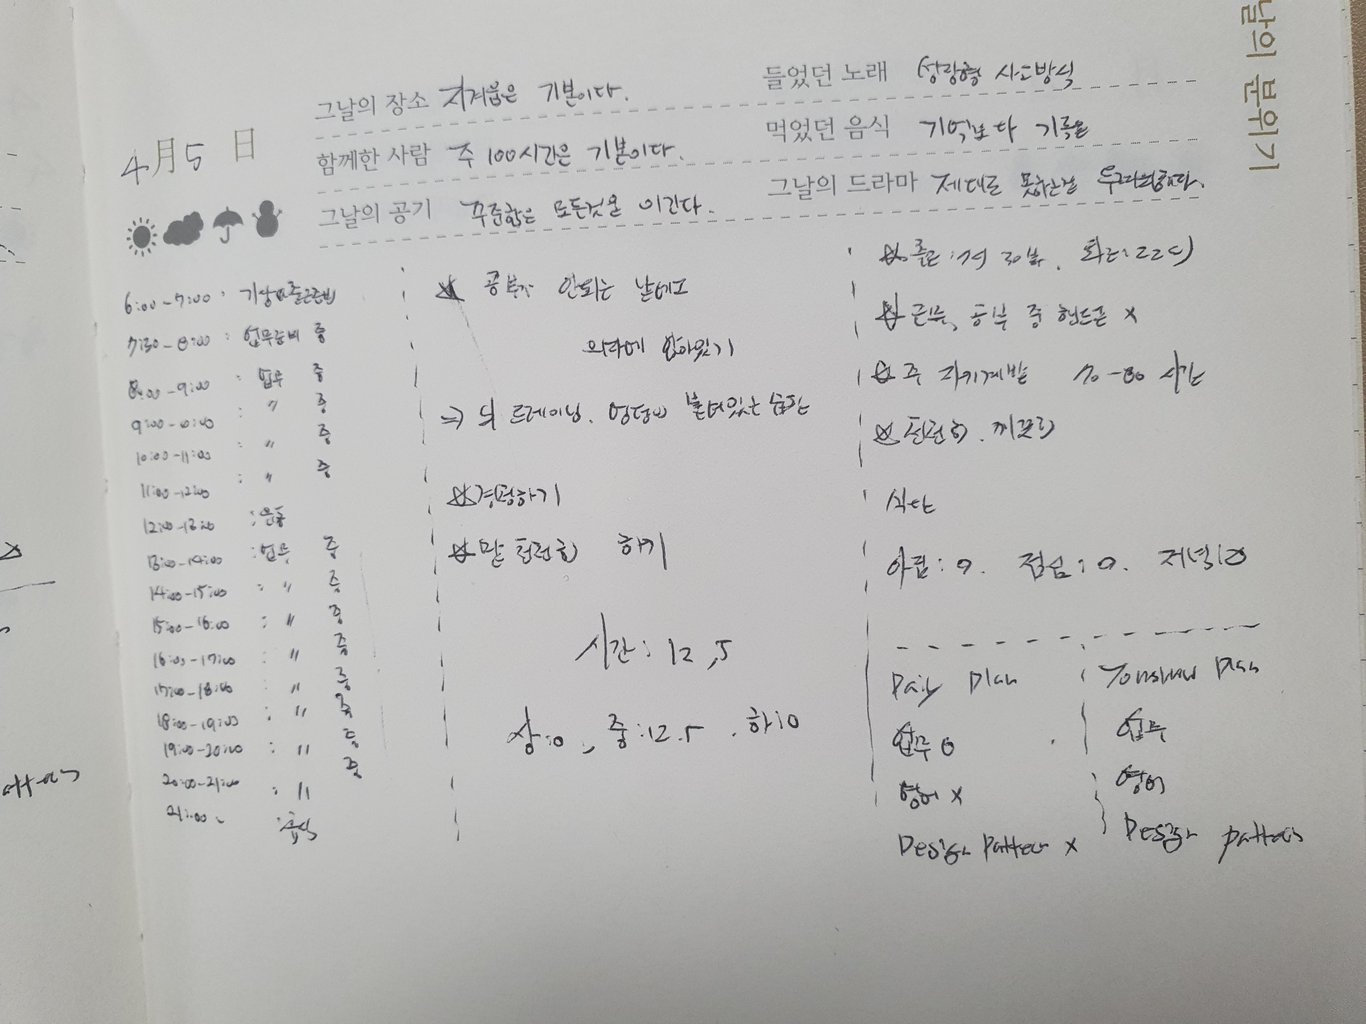 날의 분위기
4月5日
그날의 장소 지겨움은 기본이다.
함께한 사람 주 100시간은 기본이다.
그날의 공기 꾸준함은 모든것을 이긴다.
들었던 노래 성장형 사고방식
먹었던 음식 기억보다 기록을
그날의 드라마 제대로 못하는걸 두려워해라.
6:00-7:00 : 기상및출근준비
7:30-8:00 : 업무준비 중
8:00-9:00 : 업무 중
9:00-10:00 : 〃 중
10:00-11:00 : 〃 중
11:00-12:00 : 〃 중
12:00-13:00 : 운동
13:00-14:00 : 업무 중
14:00-15:00 : 〃 중
15:00-16:00 : 〃 중
16:00-17:00 : 〃 중
17:00-18:00 : 〃 중
18:00-19:00 : 〃 중
19:00-20:00 : 〃 중
20:00-21:00 : 〃 중
21:00 ~ : 휴식
☆ 공부가 안되는 날에도
의자에 앉아있기
=> 뇌 트레이닝. 엉덩이 붙여있는 습관
☆ 경청하기
☆ 말 천천히 하기
시간 : 12.5
상:0, 중:12.5, 하:0
☆ 출근 : 7시 30분. 퇴근:22시
☆ 근무, 공부 중 핸드폰 x
☆ 주 자기계발 70-80 시간
☆ 천천히. 끼꾸리
식단
아침:0. 점심:0. 저녁:0
Daily Plan
업무 0
영어 x
Design Pattern x
Tomorrow Plan
업무
영어
Design patterns